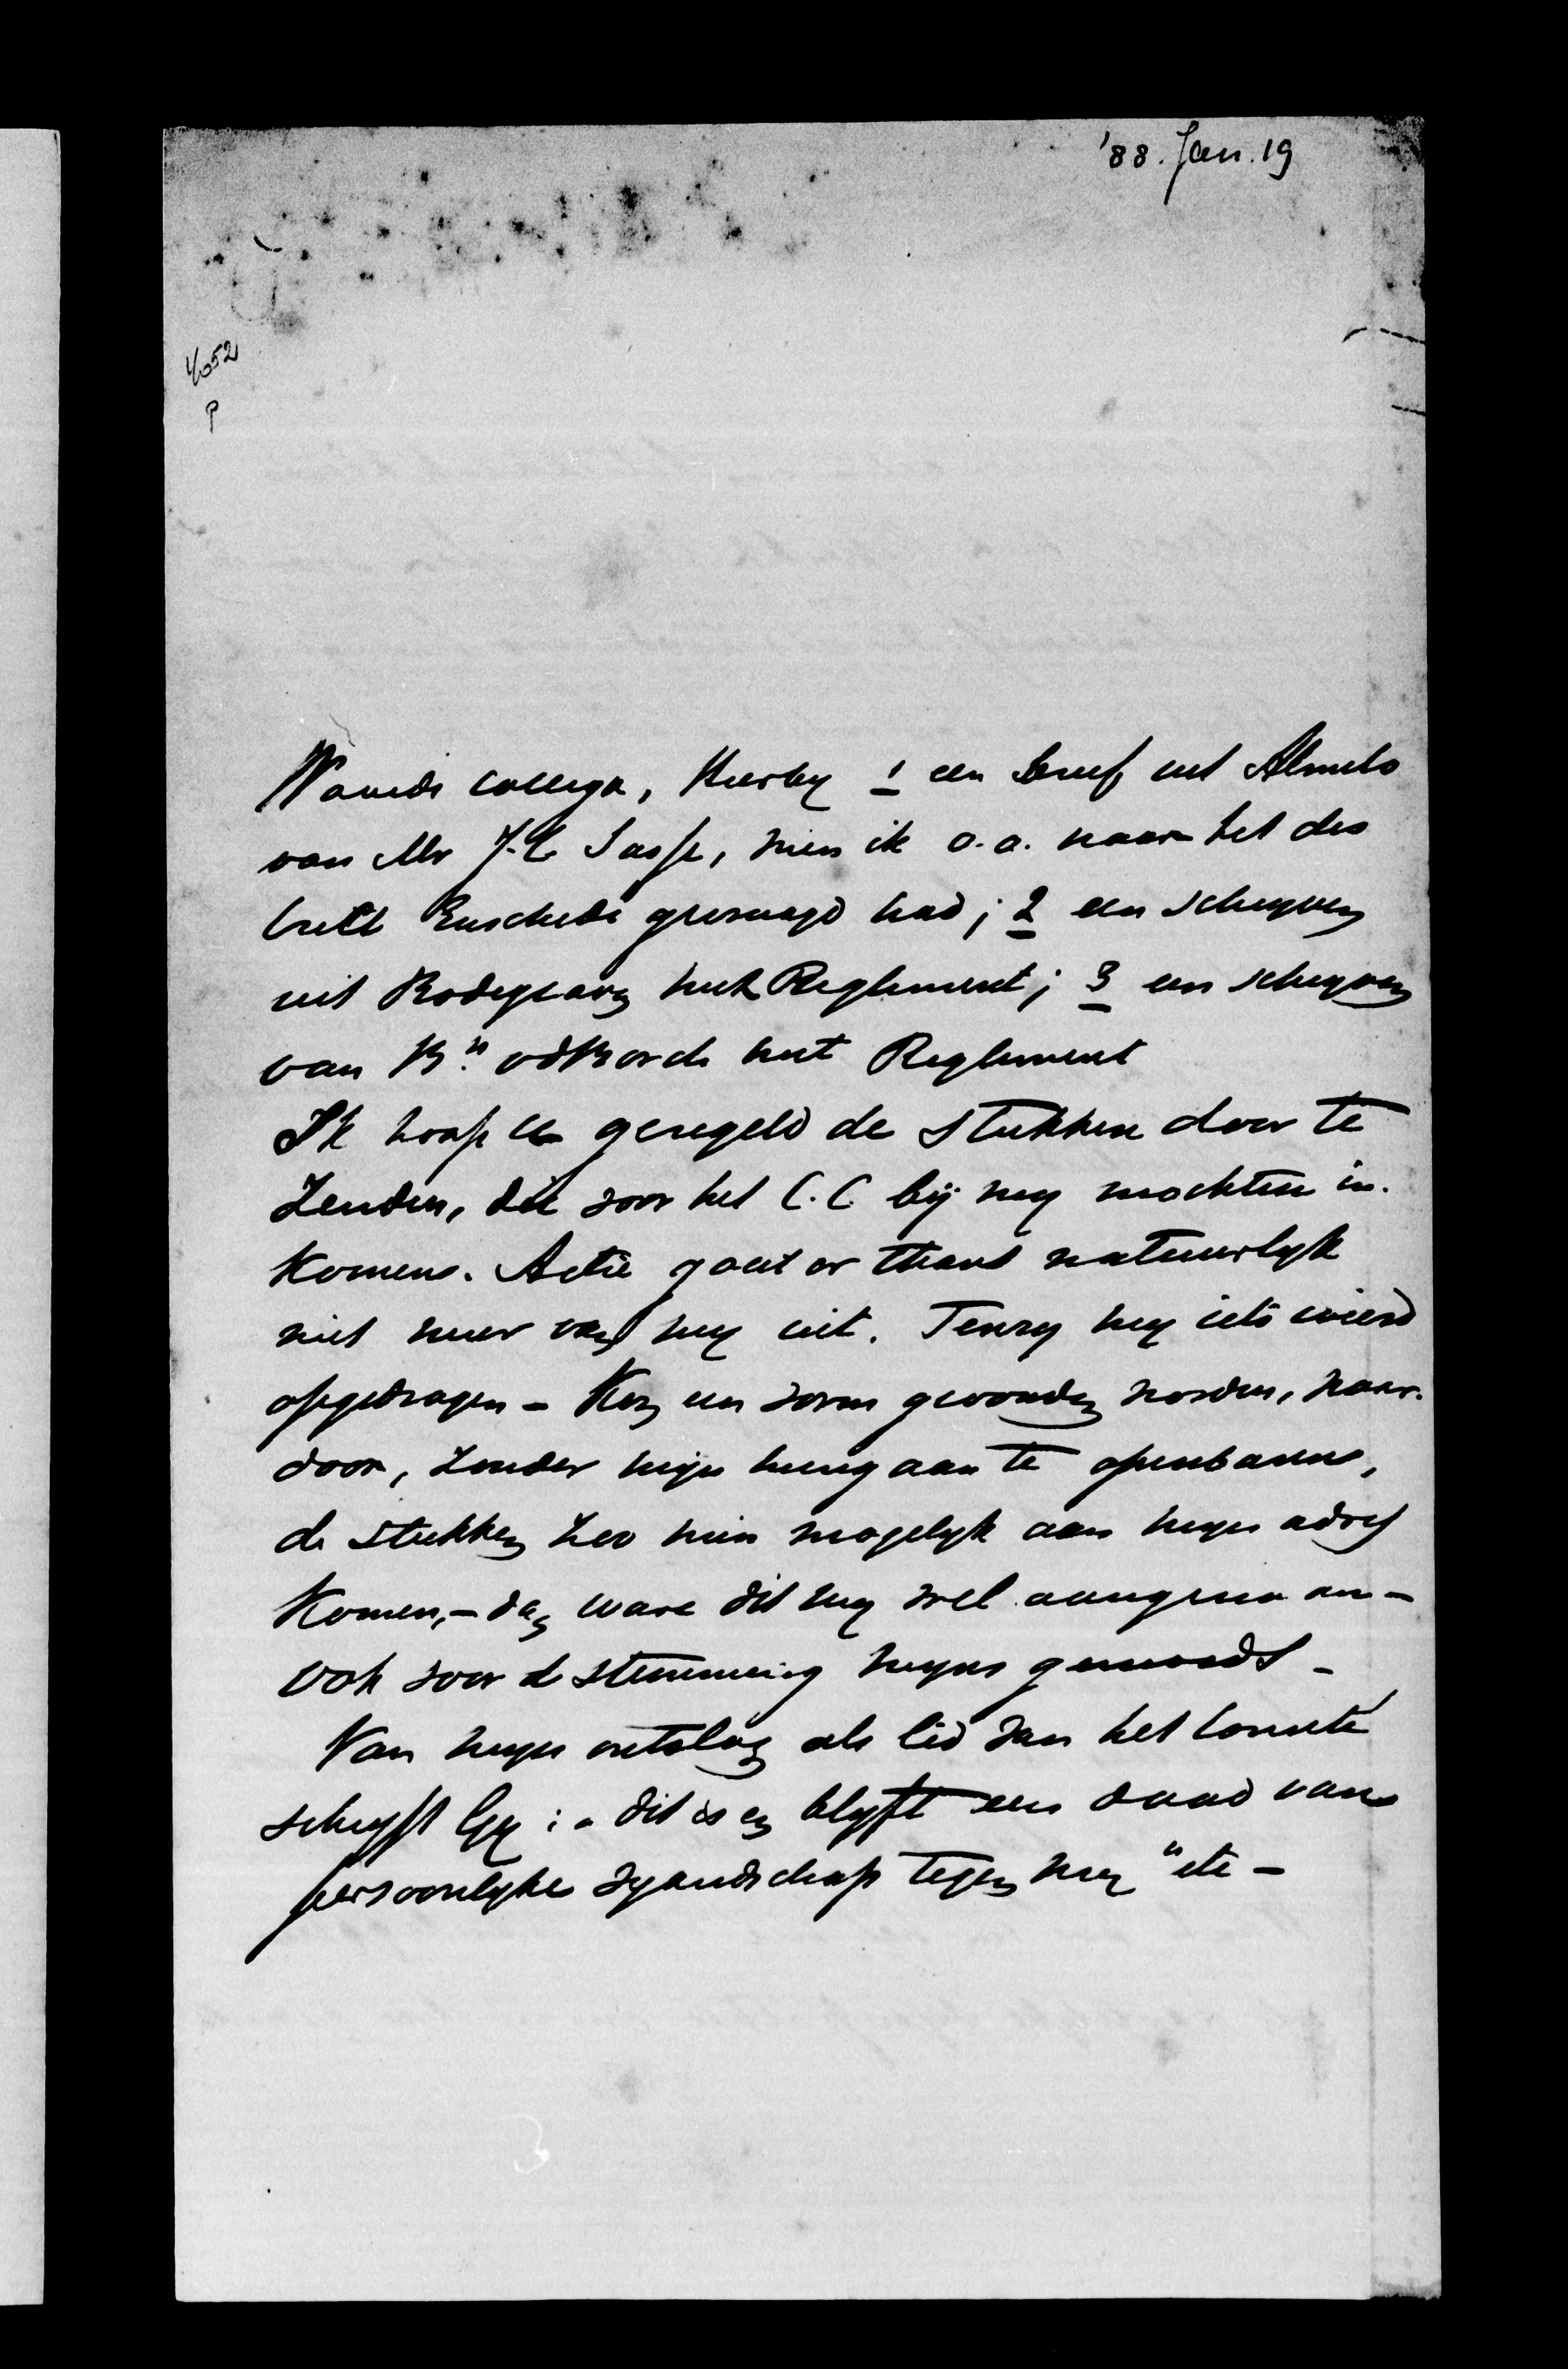 '88. Jan. 19
4052
P
Waarde collega, Hierby 1 een brief uit Almelo
van Mr J. C Sasse, wien ik o.a. naar het dis
trict Enschede gevraagd had; 2 een schryven
uit Bodegraven met Reglement; 3 een schryven
van Bn vd Borch met Reglement
Ik hoop U geregeld de stukken door te
zenden, die voor het C.C. bij my mochten in.
komen. Actie gaat er thans natuurlyk
niet meer van my uit. Tenzy my iets wierd
opgedragen - Kon een vorm gevonden worden, waar.
door, zonder mijn heengaan te openbaren,
de stukken zoo min mogelyk aan myn adres
komen, - dan ware dit my wel aangenaam -
ook voor de stemming myns gemoeds -
Van myn ontslag als lid van het Comité
schryft Gy: „dit is en blyft een daad van
persoonlyke vyandschap tegen my" etc -